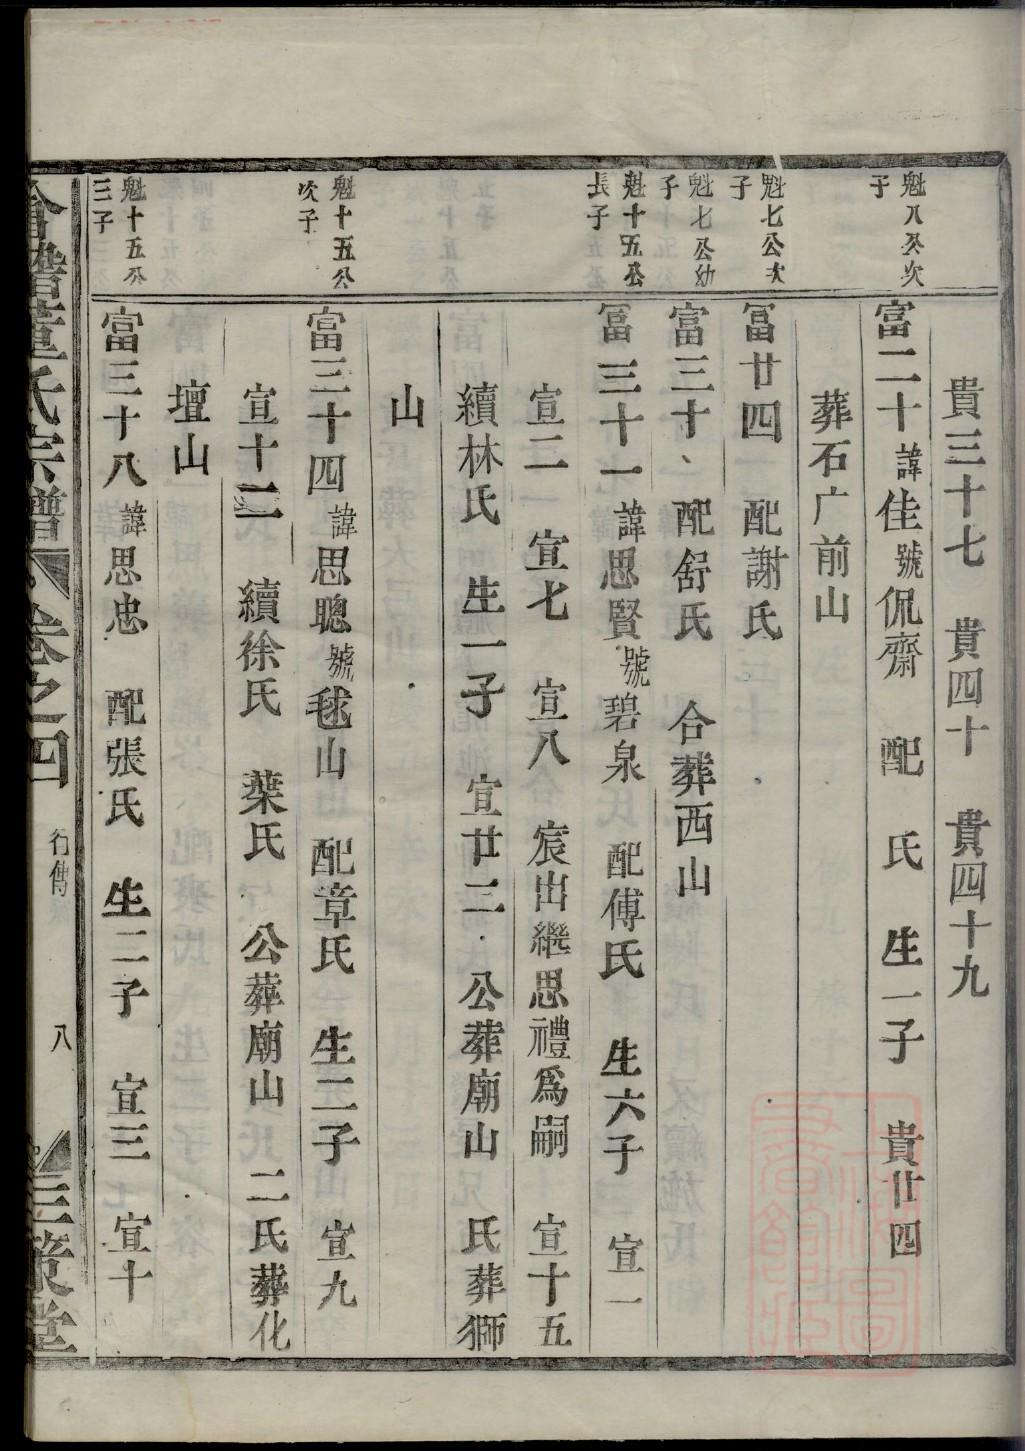 貴三十七 貴四十 貴四十九
魁八公次子
富二十諱佳號侃齋 配 氏 生一子 貴廿四
葬石广前山
魁七公次子
富廿四 配謝氏
魁七公幼子
富三十 配舒氏 合葬西山
魁十五公長子
富三十一諱思賢號碧泉 配傅氏 生六子 宣一
宣二 宣七 宣八 宸出繼思禮爲嗣 宣十五
續林氏 生一子 宣廿二 公葬廟山 氏葬獅
山
魁十五公次子
富三十四諱思聰號毬山 配章氏 生二子 宣九
宣十二 續徐氏 葉氏 公葬廟山 二氏葬化
壇山
魁十五公三子
富三十八諱思忠 配張氏 生二子 宣三 宣十
董氏宗譜 卷之四 行傳 八 三策堂